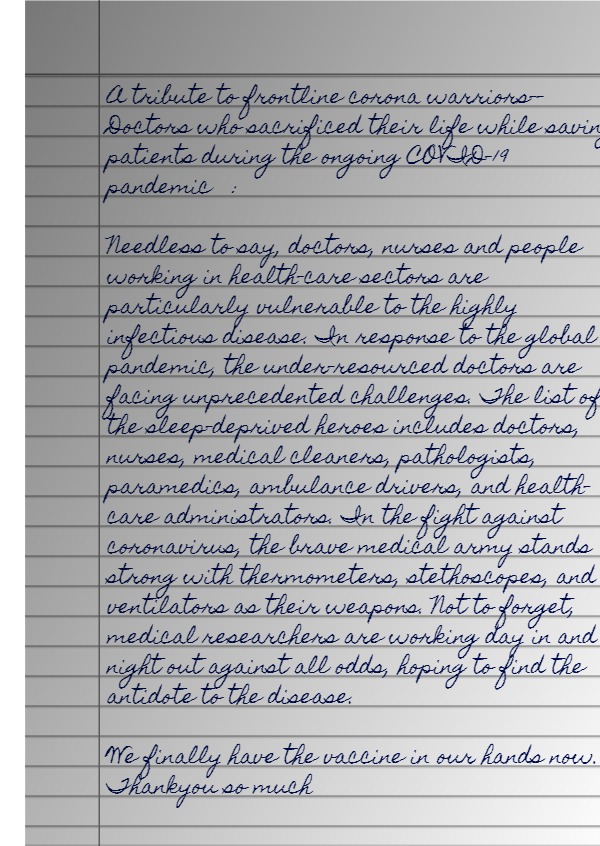 A tribute to frontline corona warriors-
Doctors who sacrificed their life while savin
patients during the ongoing COVID-19
pandemic :
Needless to say, doctors, nurses and people
working in health-care sectors are
particularly vulnerable to the highly
infectious disease. In response to the global
pandemic, the under-resourced doctors are
facing unprecedented challenges. The list of
the sleep-deprived heroes includes doctors,
nurses, medical cleaners, pathologists,
paramedics, ambulance drivers, and health-
care administrators. In the fight against
coronavirus, the brave medical army stands
strong with thermometers, stethoscopes, and
ventilators as their weapons. Not to forget,
medical researchers are working day in and
night out against all odds, hoping to find the
antidote to the disease.
We finally have the vaccine in our hands now.
Thankyou so much